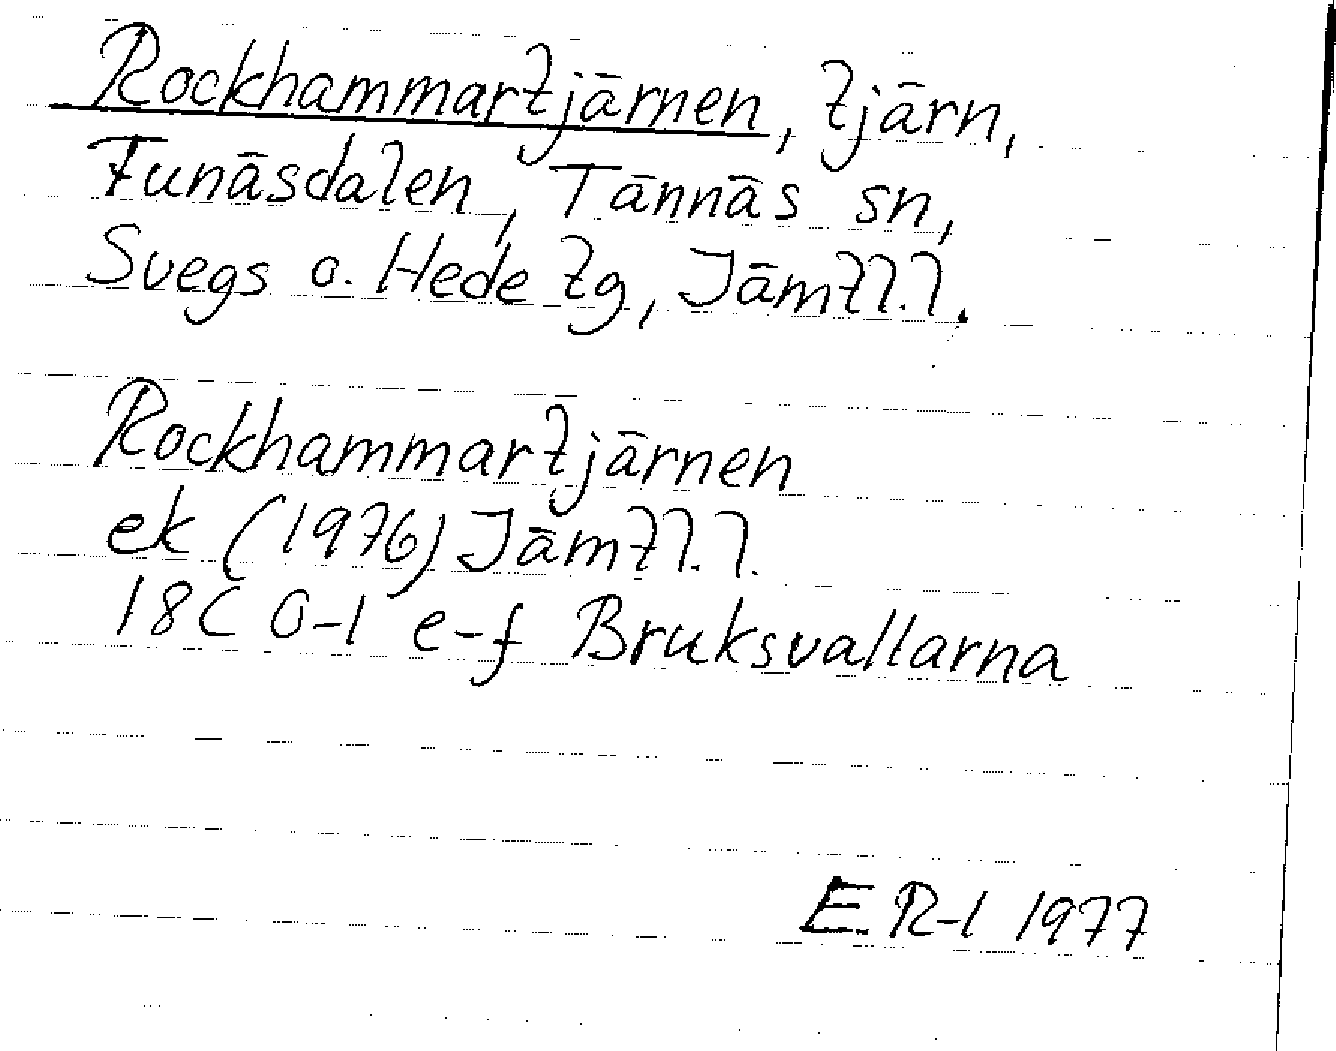 Rockhammartjärnen, tjärn,
Funäsdalen, Tännäs sn,
Svegs o. Hede tg, Jämtl.l.
Rockhammartjärnen
ek (1976) Jämtl.l.
18C 0-1 e-f Bruksvallarna
E. R-l 1977